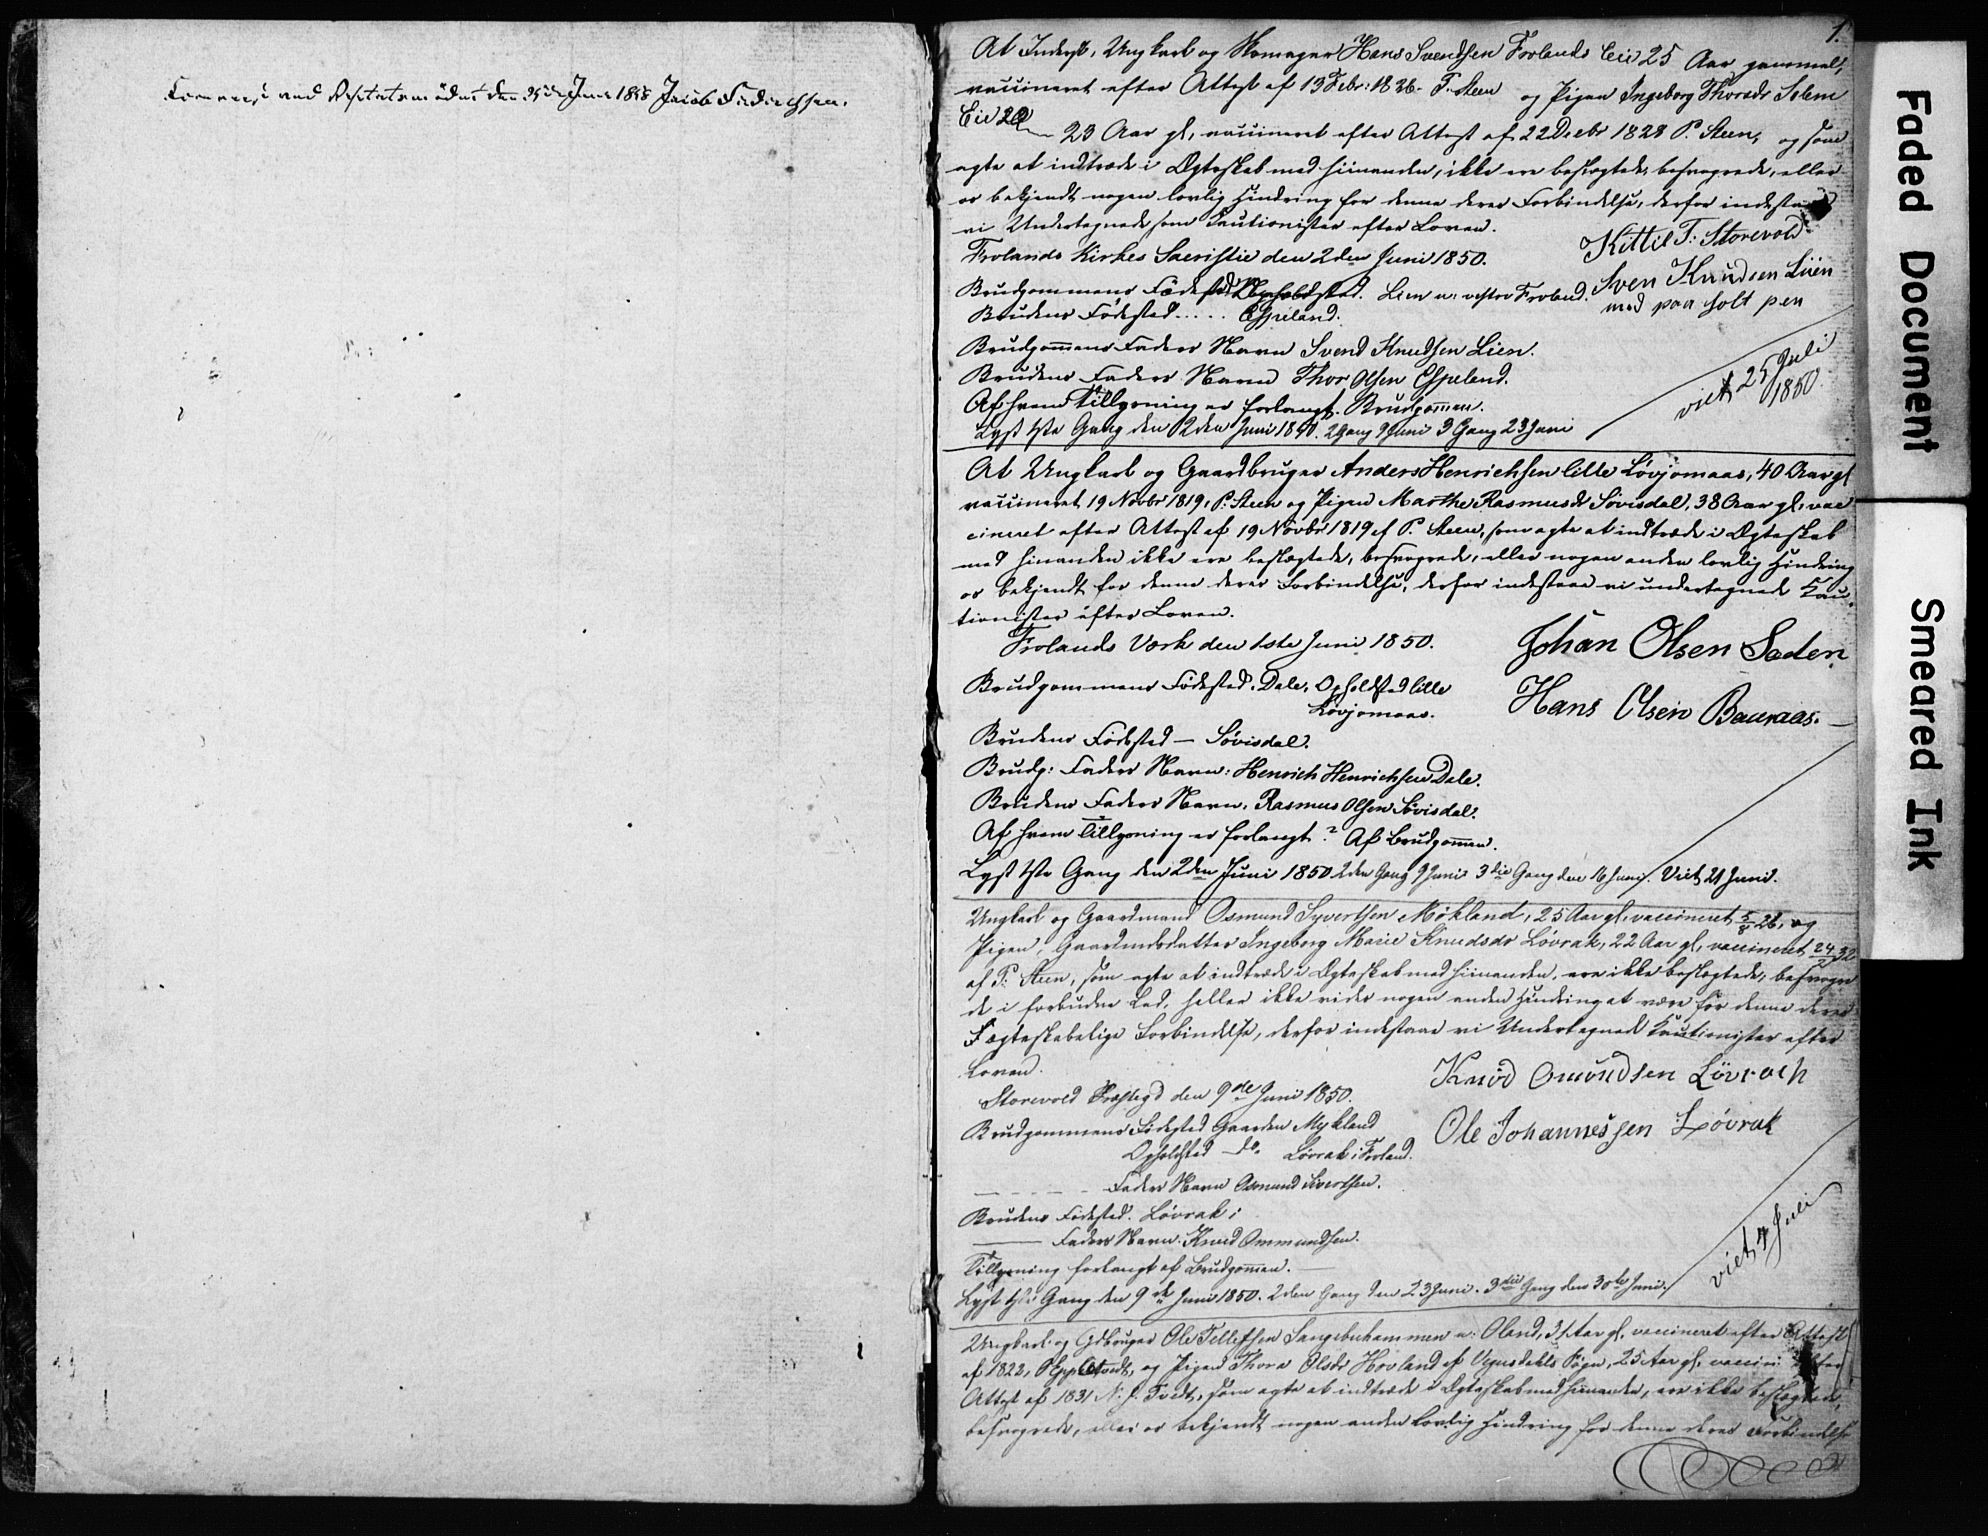 Jacob Frederichsen.
1.
At Inderst, Ungkarl og Skomager Hans Svendsen Frolands Eie 25 Aar gammel,
vaccineret efter Attest af 13 Febr: 1826 P. Steen og Pigen Ingeborg Thorsdr Solem
Eie 23 Aar gl, vaccineret efter Attest af 22 Decbr 1828 P. Steen, og som
agte at indtræde i Ægteskab med hinanden, ikke ere beslægtede, besvogrede, eller
er bekjendt nogen lovlig Hindring for denne deres Forbindelse, derfor indestaae
vi Undertegnede som Cautionister efter Loven.
Frolands Kirkes Sacristie den 2den Juni 1850.
Kittil T: Storevold
Sven Knudsen Liien
med paa holt pen
Brudgommens Fødested Opholdsted. Lien u: vestre Froland.
Brudens Fødested..... Espeland.
Brudgommens Faders Navn Svend Knudsen Lien.
Brudens Faders Navn Thor Olsen Espeland.
Af hvem Tillysning er forlangt. Brudgommen.
Lyst 1ste Gang den 2den Juni 1850. 2 Gang 9 Juni 3 Gang 23 Juni
viet 25 Juli
1850.
At Ungkarl og Gaardbruger Anders Henrichsen lille Løvjomaas, 40 Aar gl
vaccineret 19 Novbr 1819, P. Steen og Pigen Marthe Rasmusdr Søvisdal, 38 Aar gl, vac
cineret efter Attest af 19 Novbr 1819 af P. Steen, som agte at indtræde i Ægteskab
med hinanden ikke ere beslægtede, besvogrede, eller nogen anden lovlig Hindring
er bekjendt for denne deres Forbindelse, derfor indestaae vi undertegnede Cau
tionister efter Loven.
Frolands Værk den 1ste Juni 1850.
Johan Olsen Saden
Hans Olsen Bauraas.
Brudgommens Fødested. Dale, Opholdsted lille
Løvjomaas.
Brudens Fødested - Søvisdal.
Brudg: Faders Navn: Henrich Henrichsen Dale.
Brudens Faders Navn. Rasmus Olsen Søvisdal.
Af hvem Tillysning er forlangt? Af Brudgommen.
Lyst 1ste Gang den 2den Juni 1850 2den Gang 9 Juni 3die Gang den 16 Juni. Viet 21 Juni.
Ungkarl og Gaardmand Osmund Syvertsen Møkland, 25 Aar gl, vaccineret 26, og
Pigen, Gaardmdsdatter Ingeborg Marie Knudsdr Løvrak, 22 Aar gl, vaccineret 24/2 32
af P: Steen, som agte at indtræde i Ægteskab med hinanden, ere ikke beslægtede, besvogre
de i forbudne Led, heller ikke vides nogen anden Hindring at være for denne deres
Ægteskabelige Forbindelse, derfor indestaae vi Undertegnede Cautionister efter
Loven.
Storevold Præstegd den 9de Juni 1850.
Knud Omundsen Løvrach
Ole Johannessen Løvrak
Brudgommens Fødested Gaarden Mykland
Opholdsted do. Løvrak i Froland.
Faders Navn Osmund Sivertsen.
Brudens Fødested. Løvrak i
Faders Navn. Knud Ommundsen.
Tillysning forlangt af Brudgommen.
Lyst 1ste Gang den 9de Juni 1850. 2den Gang den 23 Juni. 3die Gang den 30te Juni.
viet 4 Juli
Ungkarl og Gdbruger Ole Tellefsen Langebuhammen u: Oland, 31 Aar gl, vaccineret efter Attest
af 1822, og Pigen Thora Olsdr Hovland af Vegusdahls Sogn, 25 Aar gl, vaccin: efter
Attest af 1831 N. J. Tvedt, som agte at indtræde i Ægteskab med hinanden, ere ikke beslægtede,
besvogrede, eller er bekjendt nogen anden lovlig Hindring for denne deres Forbindelse
Faded Document
Smeared Ink